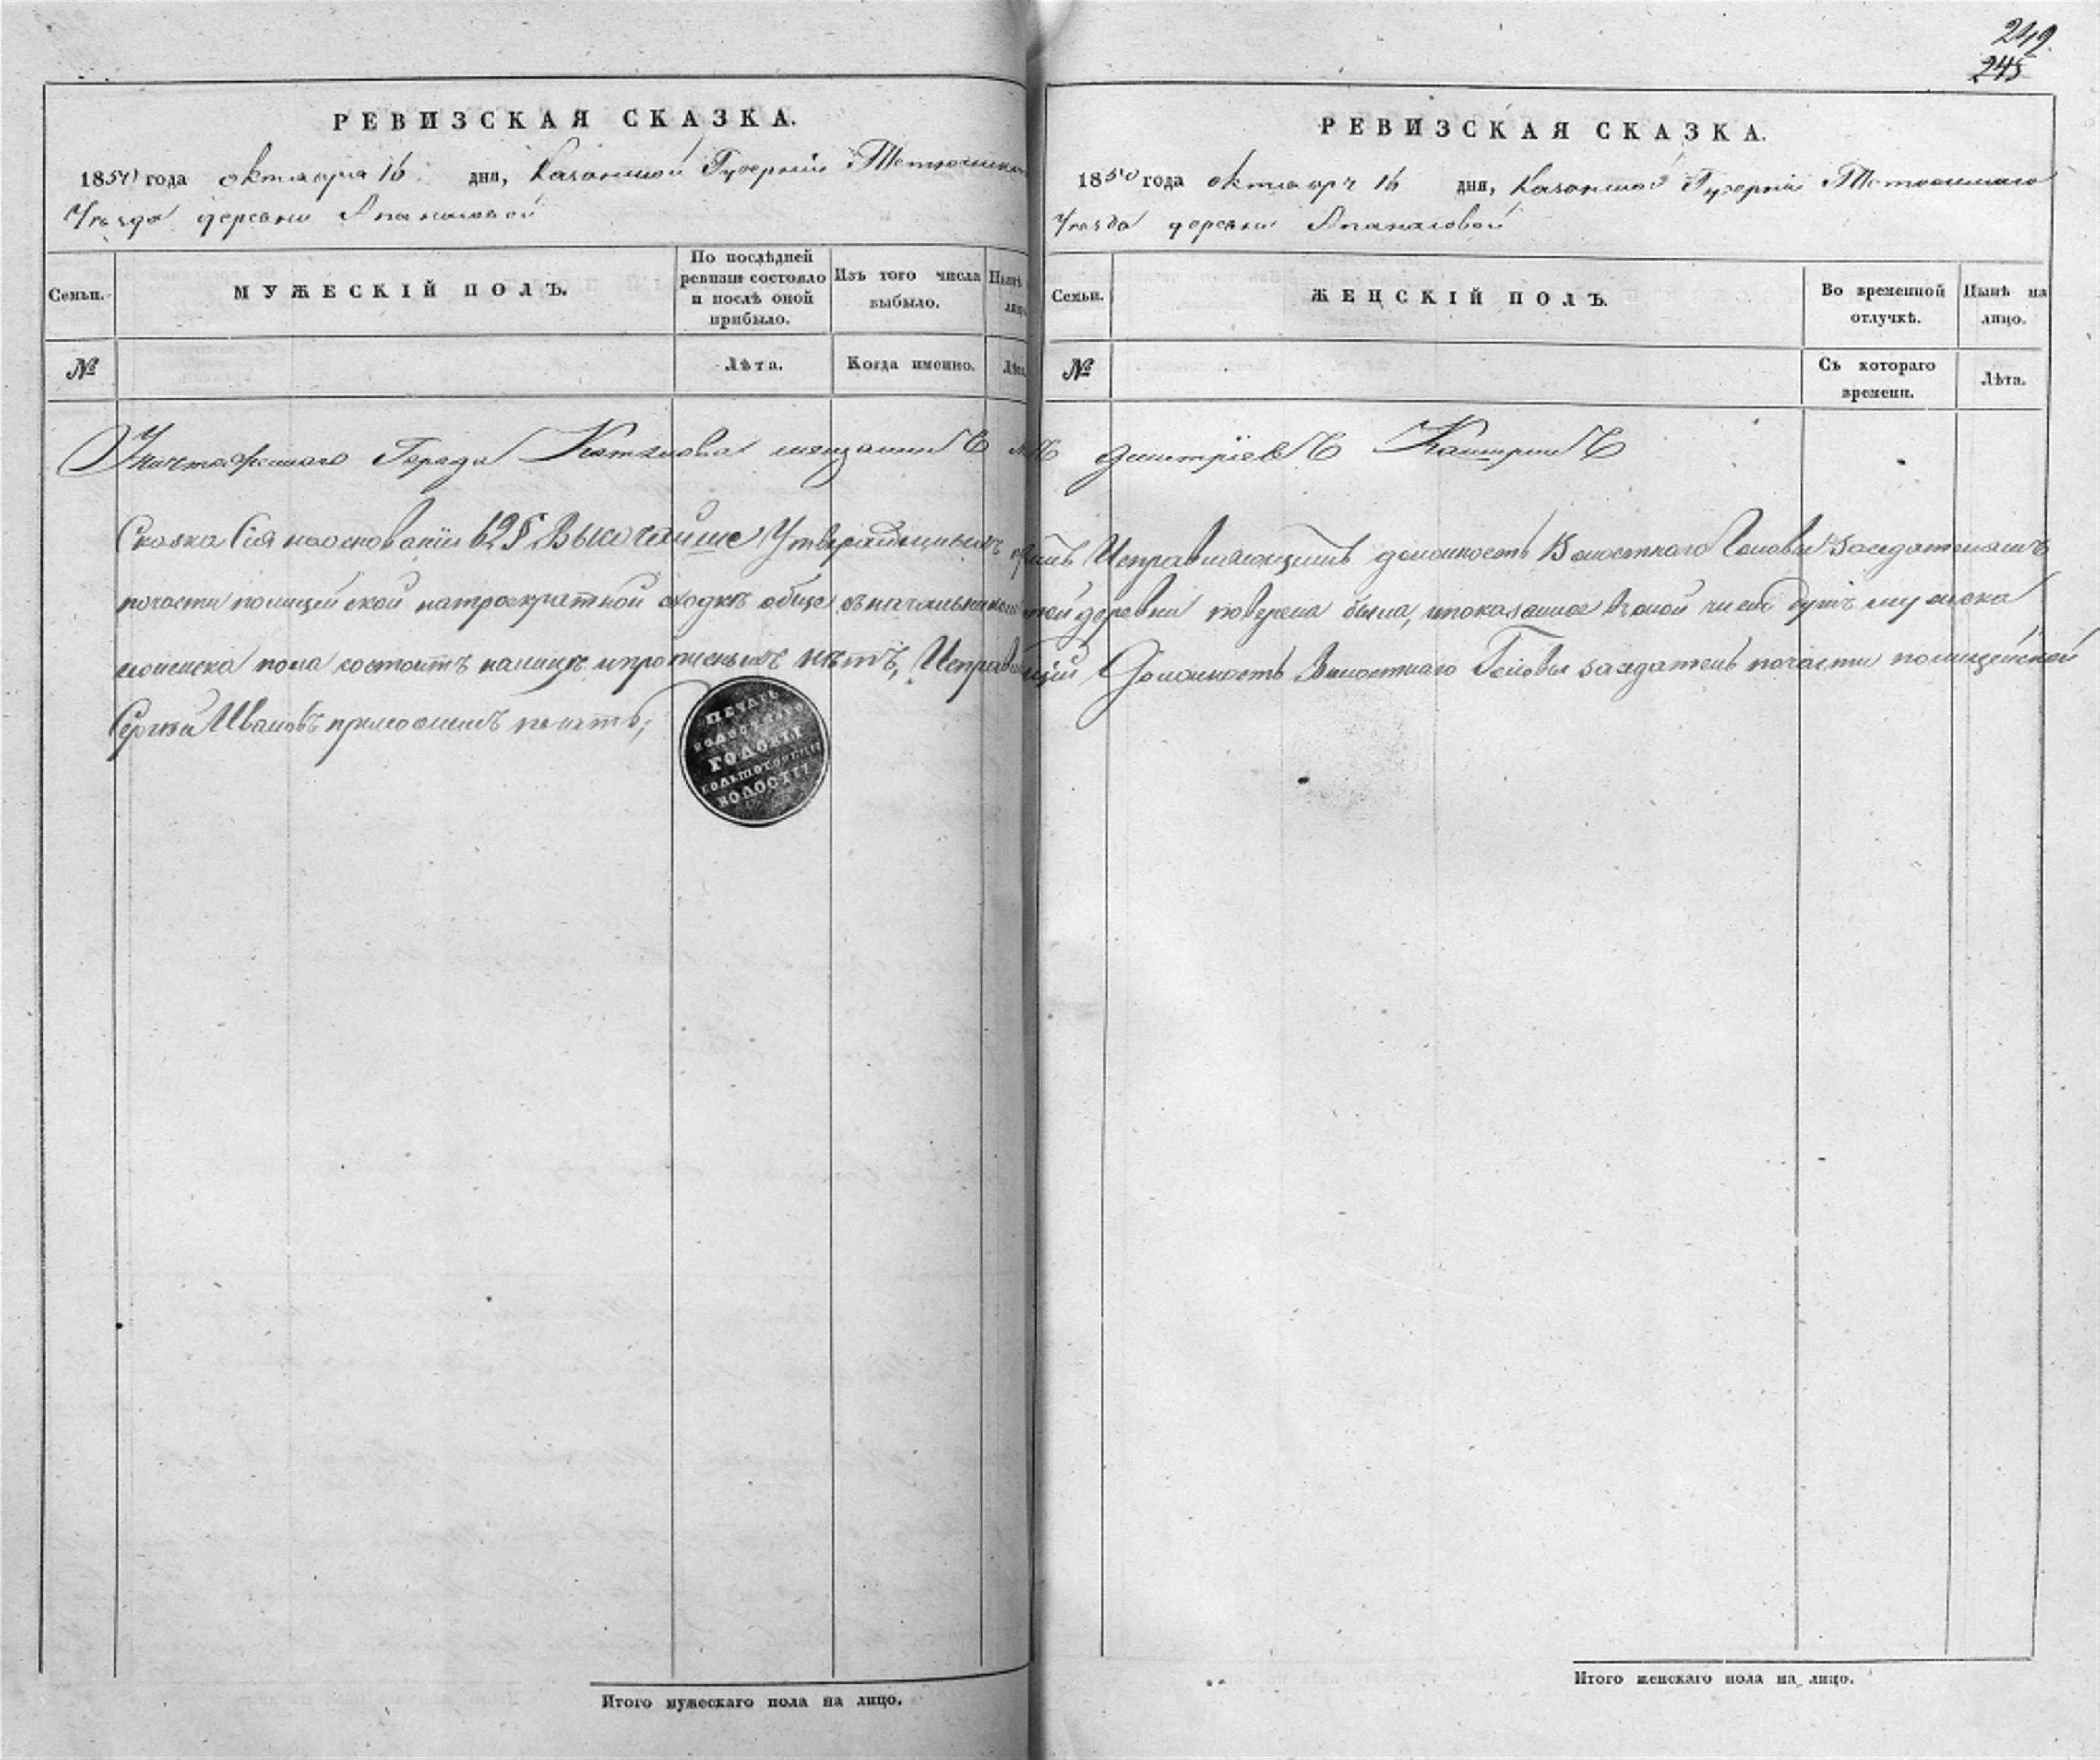 242
245
РЕВИЗСКАЯ СКАЗКА.
1850 года октября 16 дня, Казанской Губерніи Тетюшскаго
Уѣзда деревни Апанасовой
Семьи.
МУЖЕСКІЙ ПОЛЪ.
По послѣдней ревизіи состояло и послѣ оной прибыло.
Изъ того числа выбыло.
Нынѣ
№
Лѣта.
Когда именно.
Лѣта
РЕВИЗСКАЯ СКАЗКА.
1850 года октября 16 дня, Казанской Губерніи Тетюшскаго
Уѣзда деревни Апанасовой
Семьи.
ЖЕНСКІЙ ПОЛЪ.
Во временной отлучкѣ.
Нынѣ на лицо.
№
Съ котораго времени.
Лѣта.
Города мещанинъ Дмитріевъ Каширинъ
Сказка Сія на основаніи 62 § Высочайше Утвержденныхъ Исправляющимъ должность Волостнаго Головы Заседателемъ
почасти полицейской натроекратной сходкѣ обще съ начальникомъ той деревни поверена была, ипоказанное вчоной число душъ мужска
иженска пола состоитъ налицо ипрописныхъ нѣтъ, Исправляющій Должность Волостнаго Головы заседатель почасти полицейской
Сергей Ивановъ приложилъ печать;
ПЕЧАТЬ
ВОЛОСТНАГО
ГОЛОВЫ
ВОЛОСТИ
Итого мужескаго пола на лицо.
Итого женскаго пола на лицо.